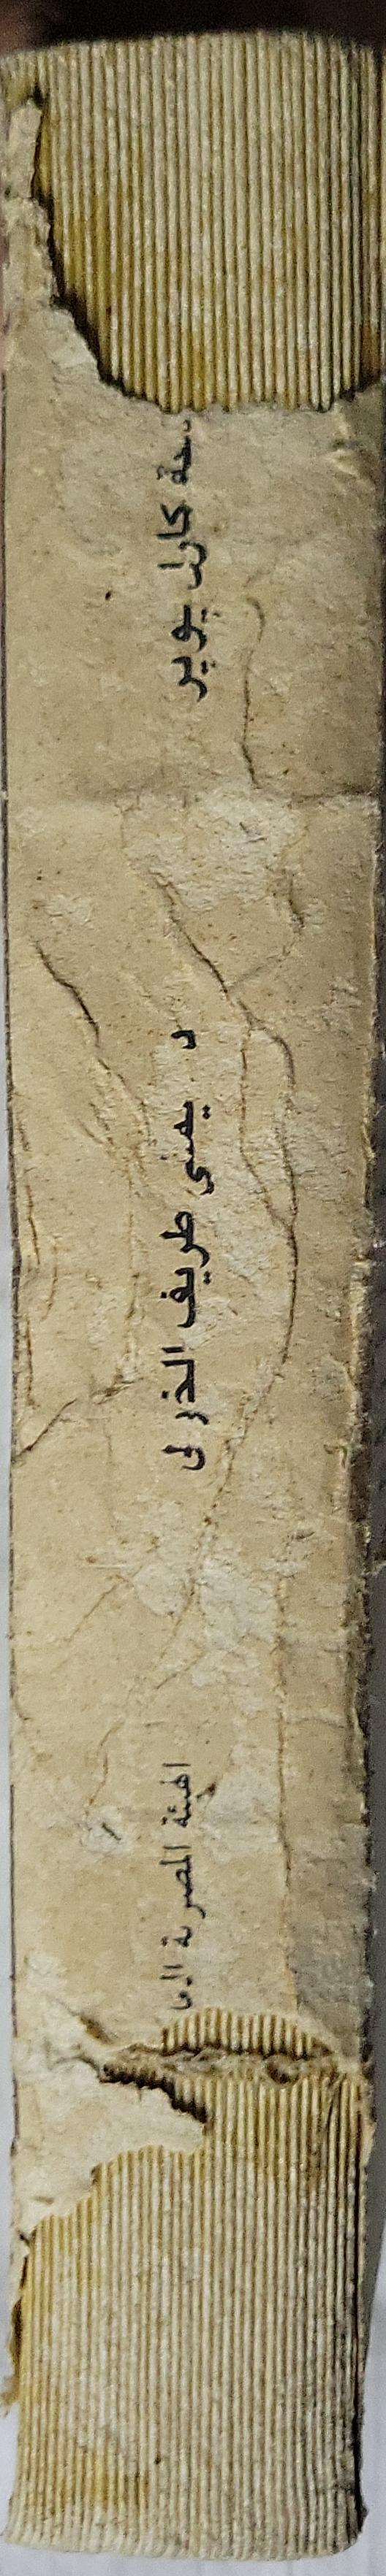 كارل بوبر
د. يمنى طريف الخولى
الهيئة المصرية